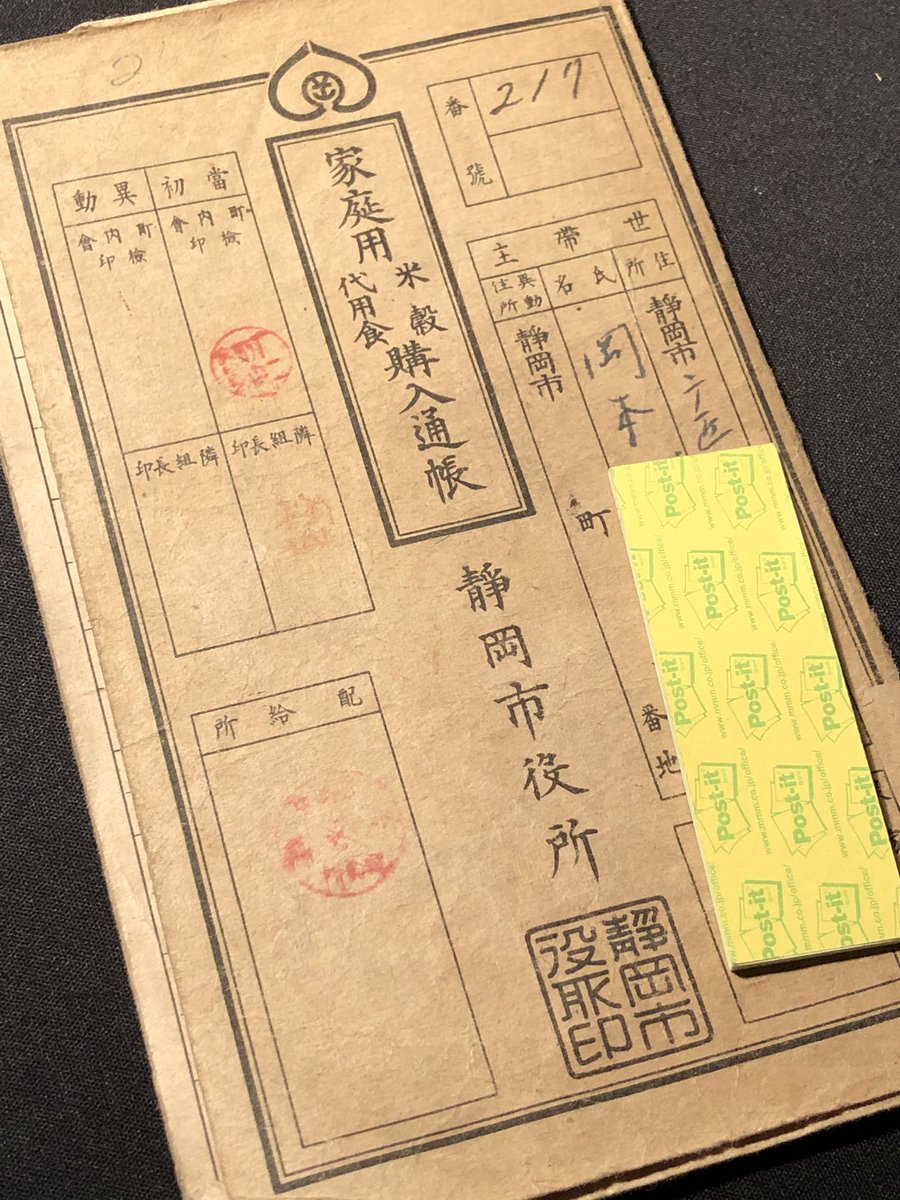 番號 217
世帶主
住所 氏名 異動住所
靜岡市
岡本
靜岡市
町
番地
家庭用 米穀 代用食 購入通帳
靜岡市役所
靜岡市役所印
當初 異動
町內會檢印 町內會檢印
隣組長印 隣組長印
配給所
Post-it
www.mmm.co.jp/office/